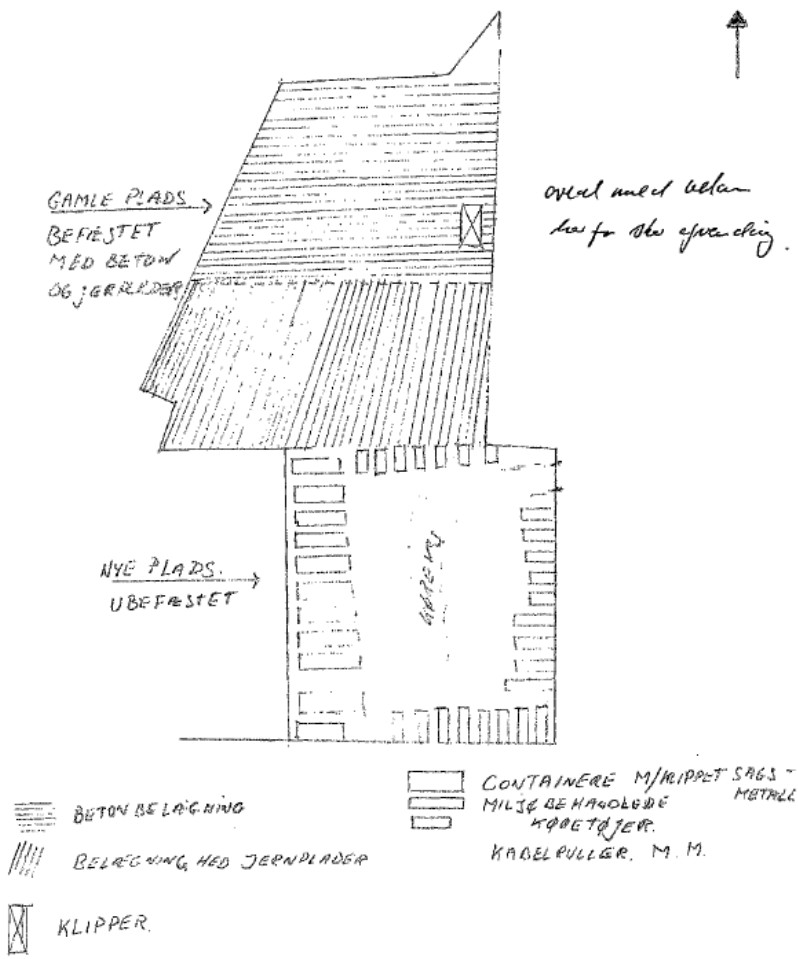 GAMLE PLADS
BEFÆSTET
MED BETON
OG JERNPLADER
NYE PLADS.
UBEFÆSTET
KØREVEJ
BETONBELÆGNING
BELÆGNING MED JERNPLADER
KLIPPER.
CONTAINERE M/KLIPPET SAGS-
METALL
MILJØBEHANDLEDE
KØRETØJER.
KABELRULLER. M. M.